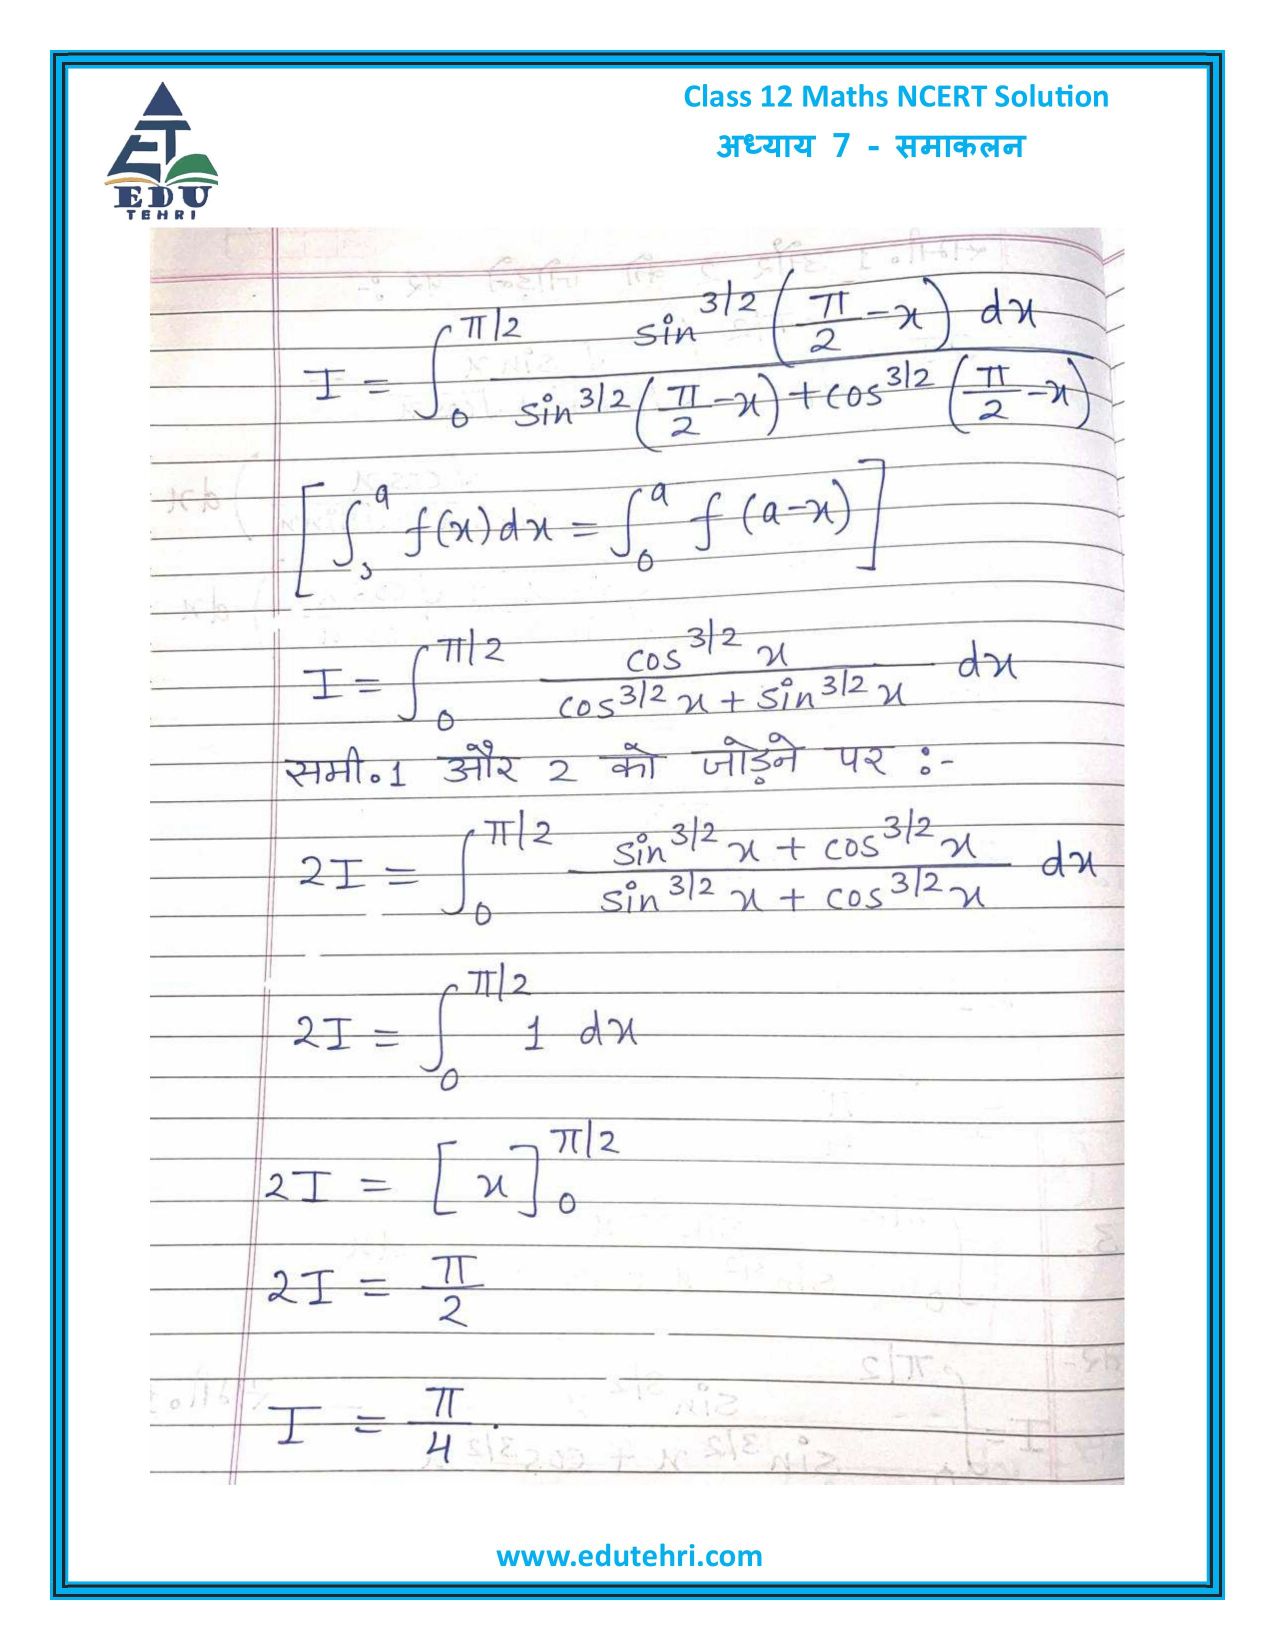 Class 12 Maths NCERT Solution
अध्याय 7 - समाकलन
EDU
TEHRI
I = ∫₀^π/2 sin^3/2 (π/2 - x) dx / sin^3/2 (π/2 - x) + cos^3/2 (π/2 - x)
[∫₀^a f(x) dx = ∫₀^a f (a-x)]
I = ∫₀^π/2 cos^3/2 x / cos^3/2 x + sin^3/2 x dx
समी. 1 और 2 को जोड़ने पर :-
2I = ∫₀^π/2 sin^3/2 x + cos^3/2 x / sin^3/2 x + cos^3/2 x dx
2I = ∫₀^π/2 1 dx
2I = [x]₀^π/2
2I = π/2
I = π/4 .
www.edutehri.com